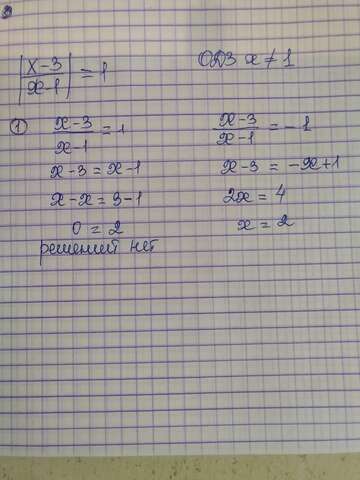 |x-3/x-1| = 1 ОДЗ x ≠ 1
① x-3/x-1 = 1
x-3 = x-1
x-x = 3-1
0 = 2
решений нет
x-3/x-1 = -1
x-3 = -x+1
2x = 4
x = 2